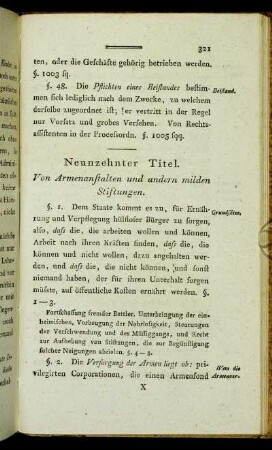 321
ten, oder die Geschäfte gehörig betrieben werden.
§. 1003 sq.
§. 48. Die Pflichten eines Beistandes bestim- Beistand.
men sich lediglich nach dem Zwecke, zu welchem
derselbe zugeordnet ist; er vertritt in der Regel
nur Vorsatz und grobes Versehen. Von Rechts-
assistenten in der Processordn. §. 1005 sqq.
Neunzehnter Titel.
Von Armenanstalten und andern milden
Stiftungen.
§. 1. Dem Staate komt es zu, für Ernäh- Grundsätze.
rung und Verpflegung hülfloser Bürger zu sorgen,
also, daſs die, die arbeiten wollen und können,
Arbeit nach ihren Kräften finden, daſs die, die
können und nicht wollen, dazu angehalten wer-
den, und daſs die, die nicht können, und sonst
niemand haben, der für ihren Unterhalt sorgen
müſste, auf öffentliche Kosten ernährt werden. §.
1—3.
Fortschaffung fremder Bettler. Unterbringung der ein-
heimischen, Vorbeugung der Nahrlosigkeit, Steurungen
der Verschwendung und des Müſsiggangs, und Recht
zur Aufhebung von Stiftungen, die zur Begünstigung
solcher Neigungen abzielen. §. 4—8.
§. 2. Die Versorgung der Armen liegt ob: pri- Wem die
vilegirten Corporationen, die einen Armenfond Armenver-
X